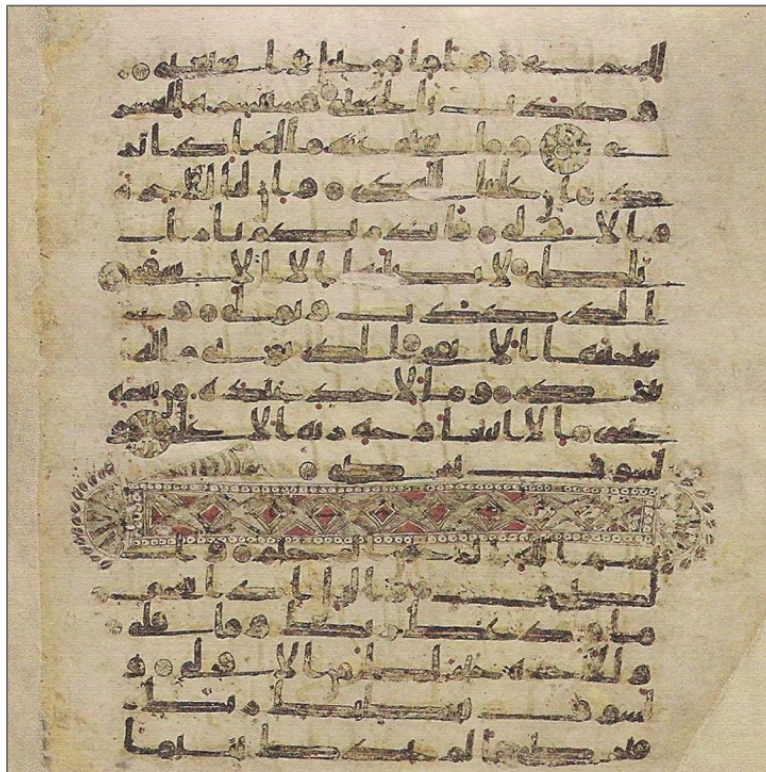 لليسرى واما من بخل واستغنى
وكذب بالحسنى فسنيسره للعسر
ى وما يغنى عنه ماله اذا تر
دى ان علينا للهدى وان لنا للاخرة
والاولى فانذرتكم نارا
تلظى لا يصلها الا الاشقى
الذى كذب وتولى وسـ
يجنبها الاتقى الذى يوتى ماله
يتزكى وما لاحد عنده من نعمه
تجزى الا ابتغا وجه ربه الاعلى و
لسوف يرضى
بسم الله الرحمن الرحيم وا
لضحى واليل اذا سجى
ما ودعك ربك وما قلى
وللاخرة خير لك من الاولى و
لسوف يعطيك ربك
فترضى الم يجدك يتيما